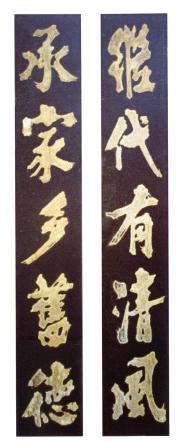 繼代有清風
承家多舊德